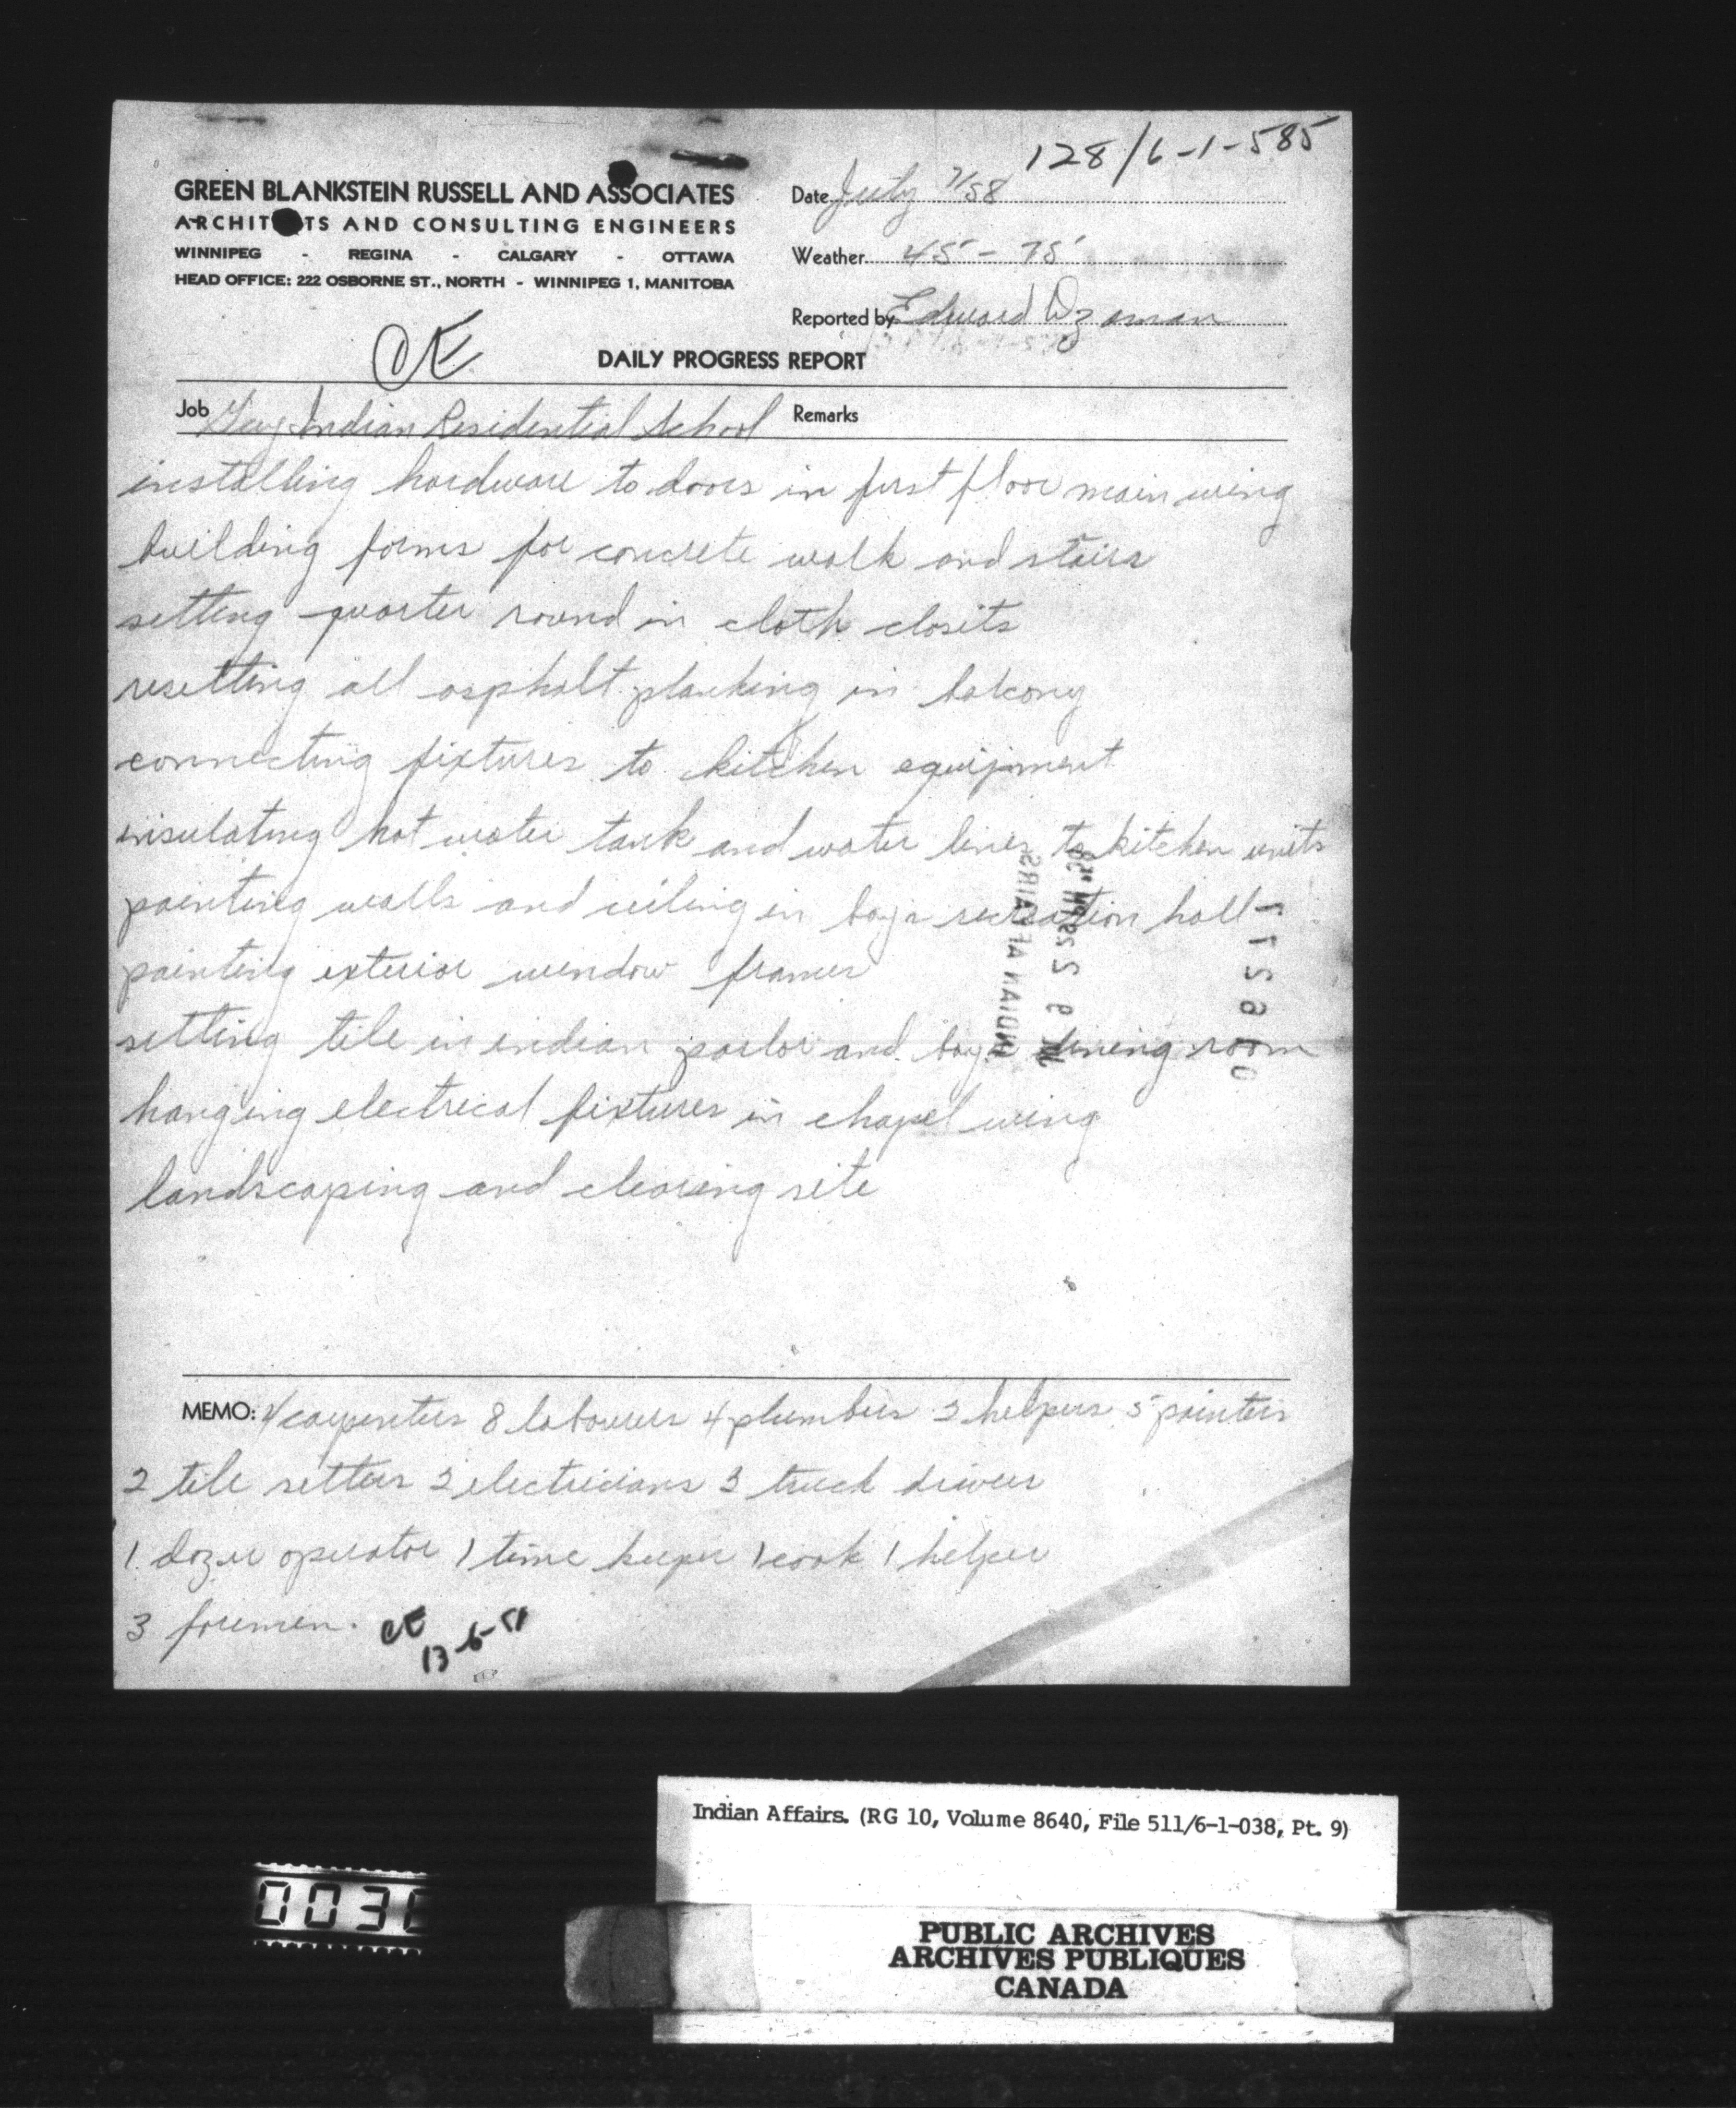 128/6-1-585
GREEN BLANKSTEIN RUSSELL AND ASSOCIATES
ARCHITECTS AND CONSULTING ENGINEERS
WINNIPEG - REGINA - CALGARY - OTTAWA
HEAD OFFICE: 222 OSBORNE ST., NORTH - WINNIPEG 1, MANITOBA
Date July 7/58
Weather 45 - 75
Reported by Edward
DAILY PROGRESS REPORT
Job Indian Residential School Remarks
installing hardware to doors in first floor main wing
building forms for concrete walk and stairs
setting quarter round in cloth closits
resetting all asphalt planking in balcony
connecting fixtures to kitchen equipment
insulating hot water tank and water lines to kitchen units
painting walls and ceiling in boys recreation hall
painting exterior window frames
setting tile in indian parlor and boys dining room
hanging electrical fixtures in chapel wing
landscaping and clearing site
INDIAN AFFAIRS
MEMO: 4 carpenters 8 labourers 4 plumbers 3 helpers 5 painters
2 tile setters 2 electricians 3 truck drivers
1 dozer operator 1 time keeper 1 cook 1 helper
3 foremen.
Indian Affairs. (RG 10, Volume 8640, File 511/6-1-038, Pt. 9)
PUBLIC ARCHIVES
ARCHIVES PUBLIQUES
CANADA